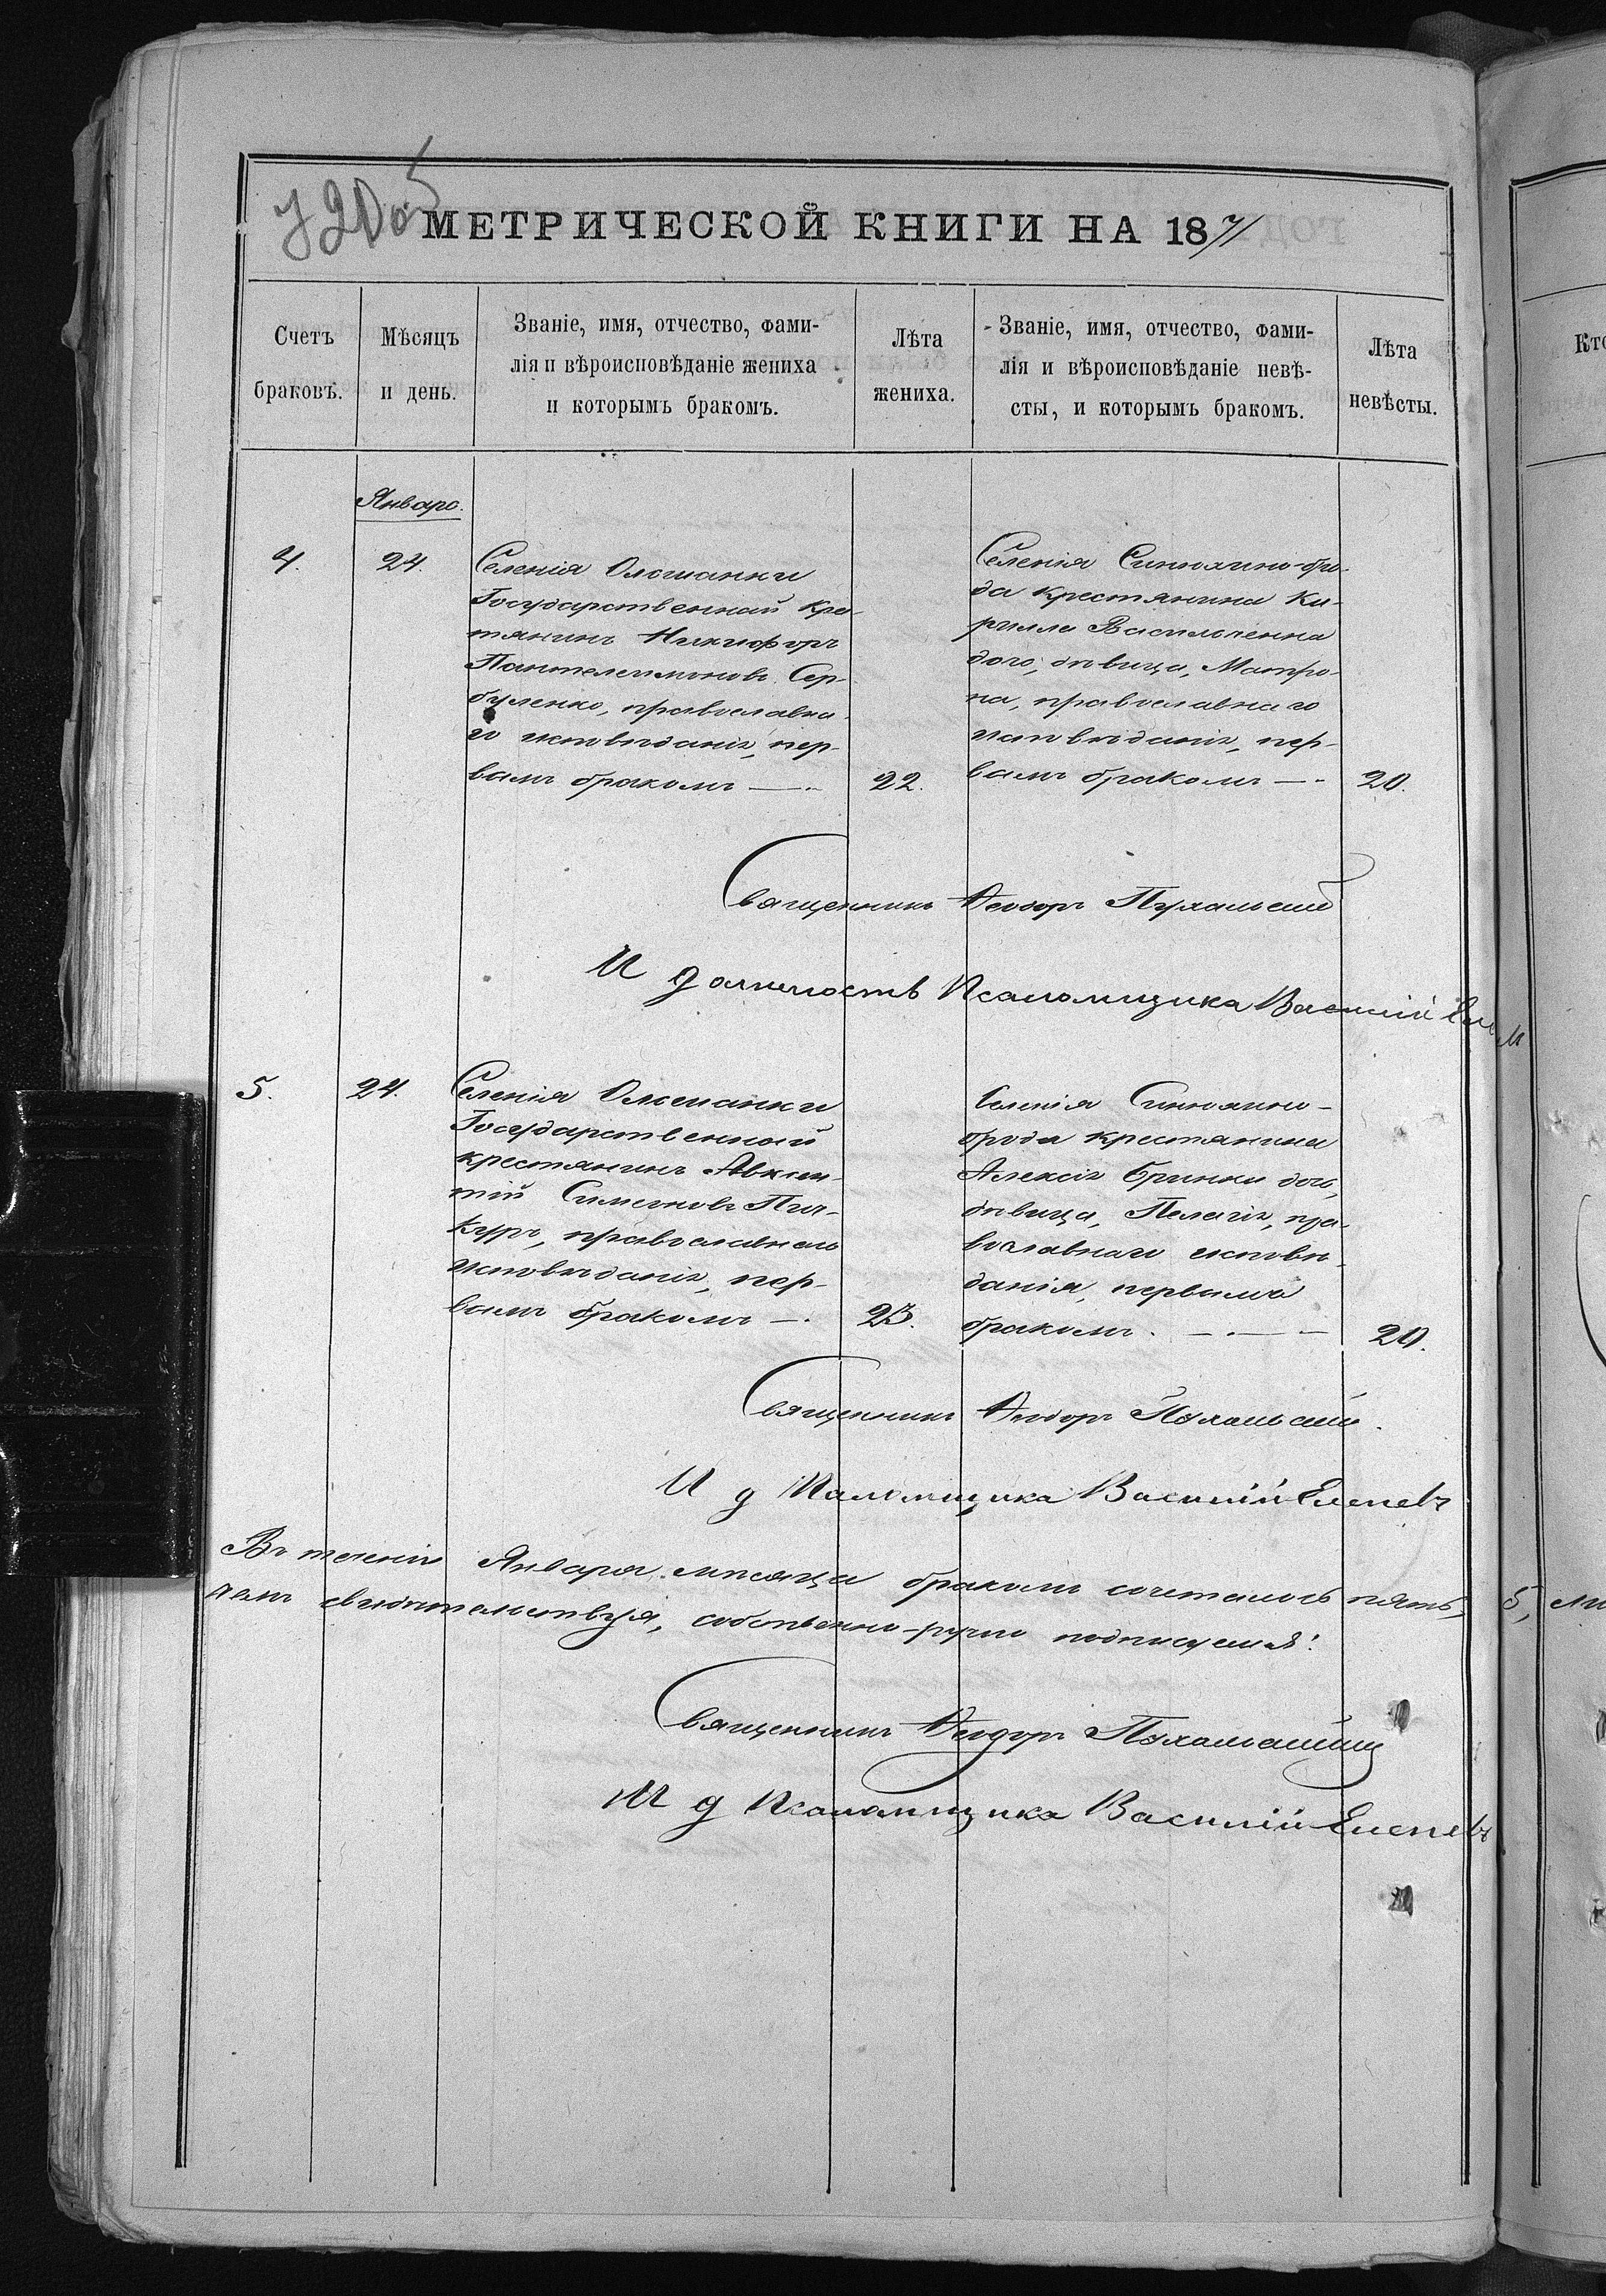 МЕТРИЧЕСКОЙ КНИГИ НА 1871
Счетъ браковъ.
Мѣсяцъ и день.
Званіе, имя, отчество, фами-
лія и вѣроисповѣданіе жениха
и которымъ бракомъ.
Лѣта жениха.
Званіе, имя, отчество, фами-
лія и вѣроисповѣданіе невѣ-
сты, и которымъ бракомъ.
Лѣта невѣсты.
Январь.
4.
24.
Селенія Ольшанки
Государственный кре-
тянинъ Никифоръ
Пантелеимоновъ Сер-
буленко, православна-
го исповѣданія, пер-
вымъ бракомъ —
22.
Селенія Синюхино-бро-
да крестянина Ки-
рилла Васильченка
дочь, дѣвица, Матро-
на, православнаго
исповѣданія, пер-
вымъ бракомъ —
20.
Священникъ Ѳеодоръ Пухальскій
И должность Псаломщика Василій
5.
24.
Селенія Ольшанки
Государственный
крестянинъ Авксен-
тій Симеоновъ
православнаго
исповѣданія, пер-
вымъ бракомъ —.
23.
Селенія Синюхино-
брода крестянина
Алексія Бринки дочь,
дѣвица, Пелагія, пра-
вославнаго исповѣ-
данія, первымъ
бракомъ. — — —
20.
Священникъ Ѳеодоръ Пухальскій.
И д Псаломщика Василій
Въ теченіи Января мѣсяца бракомъ сочеталось пять,
чемъ свидѣтельствуя, собственно-ручно подписуемся:
Священникъ Ѳеодоръ Пухальскій
И д Псаломщика Василій
Кто